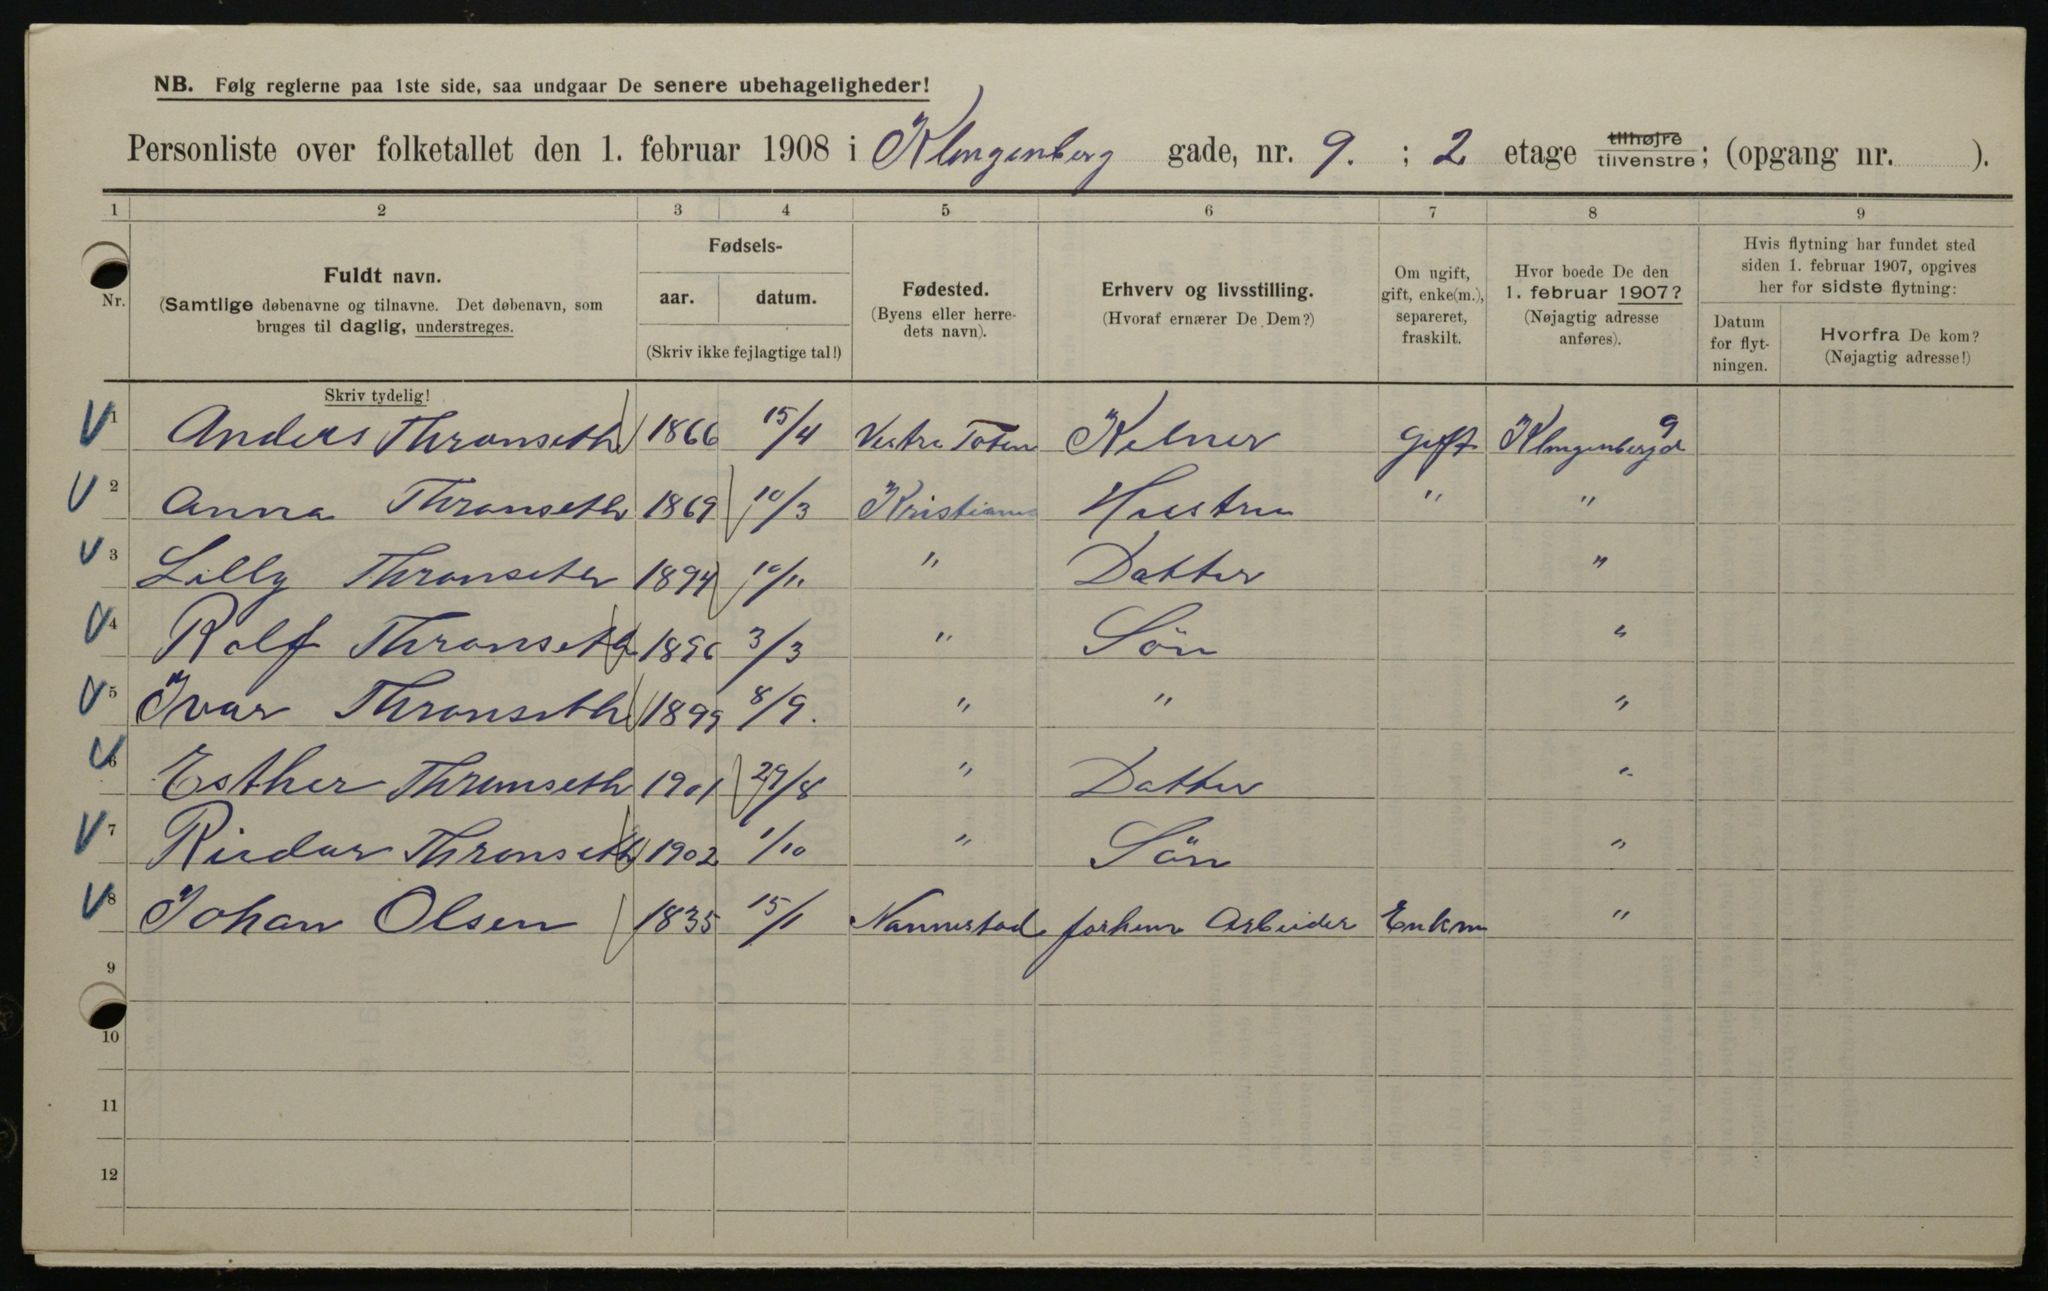 NB. Følg reglerne paa 1ste side, saa undgaar De senere ubehageligheder!
Personliste over folketallet den 1. februar 1908 i Klingenberg gade, nr. 9. ; 2 etage tilhøjre tilvenstre; (opgang nr. ).
1 2 3 4 5 6 7 8 9
Nr.
Fuldt navn.
(Samtlige døbenavne og tilnavne. Det døbenavn, som
bruges til daglig, understreges.
Fødsels-
aar. datum.
(Skriv ikke fejlagtige tal!)
Fødested.
(Byens eller herre-
dets navn).
Erhverv og livsstilling.
(Hvoraf ernærer De Dem?)
Om ugift,
gift, enke(m.),
separeret,
fraskilt.
Hvor boede De den
1. februar 1907?
(Nøjagtig adresse
anføres).
Hvis flytning har fundet sted
siden 1. februar 1907, opgives
her for sidste flytning:
Datum
for flyt-
ningen.
Hvorfra De kom?
(Nøjagtig adresse!)
Skriv tydelig!
1 Anders Thronseth 1866 15/4 Vestre Toten Kelner Gift Klingenberggd 9
2 Anna Thronseth 1869 10/3 Kristiania Hustru " "
3 Lilly Thronseth 1894 10/11 " Datter "
4 Rolf Thronseth 1896 3/3 " Sön "
5 Ivar Thronseth 1899 8/9. " " "
6 Esther Thronseth 1901 29/8 " Datter "
7 Reidar Thronseth 1902 1/10 " Sön "
8 Johan Olsen 1835 15/1 Nannestad forhenv Arbeider Enkm "
9
10
11
12